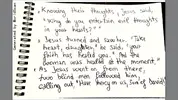 Knowing their thoughts, Jesus said,
"Why do you entertain evil thoughts
in your hearts?"
Jesus turned and saw her. "Take
heart, daughter," he said, "your
faith has healed you." And the
woman was healed at that moment."
As Jesus went on from there,
two blind men followed him,
calling out "Have mercy on us, Son of David!"